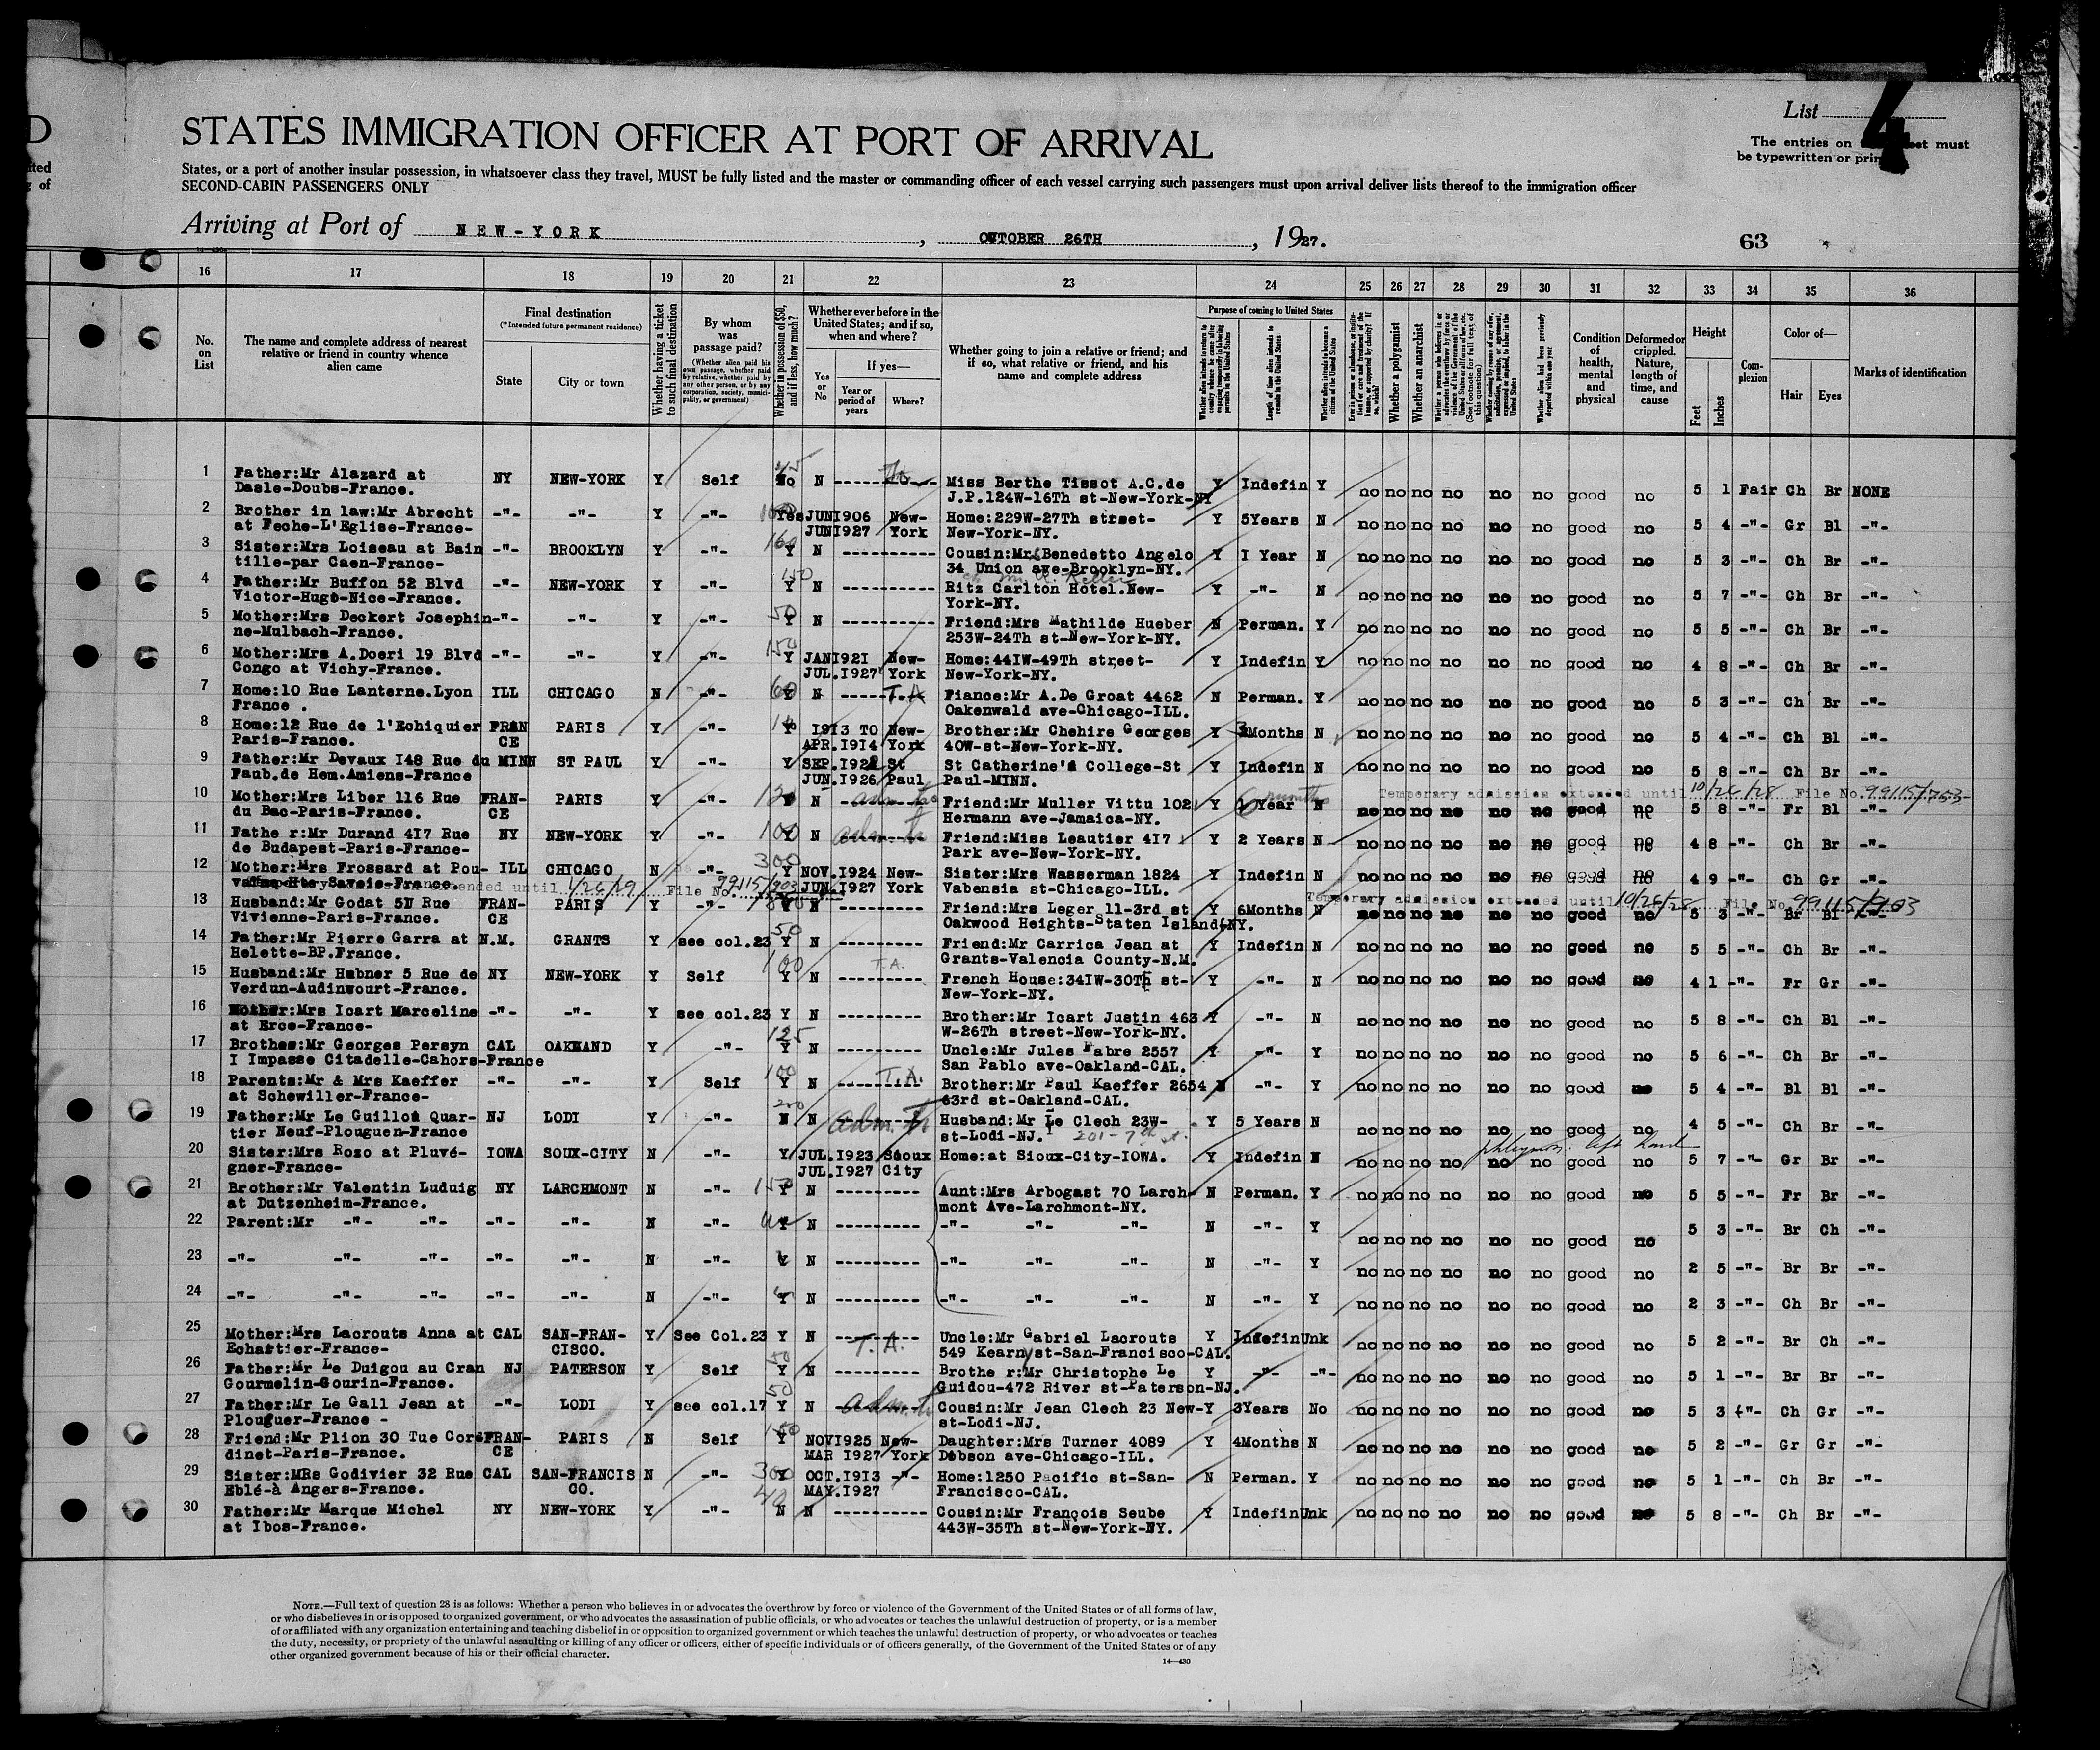 D
List 4
STATES IMMIGRATION OFFICER AT PORT OF ARRIVAL
The entries on eet must
be typewritten or prin
ited
g of
States, or a port of another insular possession, in whatsoever class they travel, MUST be fully listed and the master or commanding officer of each vessel carrying such passengers must upon arrival deliver lists thereof to the immigration officer
SECOND-CABIN PASSENGERS ONLY
Arriving at Port of NEW-YORK, OCTOBER 26TH, 1927.
63
16 17 18 19 20 21 22 23 24 25 26 27 28 29 30 31 32 33 34 35 36
No. on List
The name and complete address of nearest relative or friend in country whence alien came
Final destination
(*Intended future permanent residence)
State
City or town
Whether having a ticket to such final destination
By whom was passage paid?
(Whether alien paid his own passage, whether paid by relative, whether paid by any other person, or by any corporation, society, municipality, or government)
Whether in possession of $50, and if less, how much?
Whether ever before in the United States; and if so, when and where?
Yes or No
If yes—
Year or period of years
Where?
Whether going to join a relative or friend; and if so, what relative or friend, and his name and complete address
Purpose of coming to United States
Length of time alien intends to remain in the United States
Whether alien intends to become a citizen of the United States
Whether a polygamist
Whether an anarchist
Condition of health, mental and physical
Deformed or crippled. Nature, length of time, and cause
Height
Feet
Inches
Complexion
Color of—
Hair
Eyes
Marks of identification
1 Father:Mr Alazard at NY NEW-YORK Y Self No N Miss Berthe Tissot A.C.de Y Indefin Y no no no no no no good no 5 1 Fair Ch Br NONE
Dasle-Doubs-France. J.P.124W-16Th st-New-York-NY
2 Brother in law:Mr Abrecht -"- -"- Y -"- Yes JUNI906 New- Home:229W-27Th street- Y 5Years N no no no no no no good no 5 4 -"- Gr Bl -"-
at Feche-L'Eglise-France- JUNI927 York New-York-NY.
3 Sister:Mrs Loiseau at Bain -"- BROOKLYN Y -"- 160 Y N ---------- Cousin:Mr Benedetto Angelo Y I Year N no no no no no no good no 5 3 -"- Ch Br -"-
tille-par Caen-France- 34 Union ave-Brooklyn-NY.
4 Father:Mr Buffon 52 Blvd -"- NEW-YORK Y -"- 150 Y N ---------- Ritz Carlton Hotel.New- Y -"- N no no no no no no good no 5 7 -"- Ch Br -"-
Victor-Hugo-Nice-France. York-NY.
5 Mother:Mrs Deckert Josephin -"- -"- Y -"- 50 Y N ---------- Friend:Mrs Mathilde Hueber N Perman. Y no no no no no no good no 5 5 -"- Ch Br -"-
ne-Mulbach-France. 253W-24Th st-New-York-NY.
6 Mother:Mrs A.Doeri 19 Blvd -"- -"- Y -"- 150 Y JANI921 New- Home:44IW-49Th street- Y Indefin Y no no no no no no good no 4 8 -"- Ch Br -"-
Congo at Vichy-France. JUL.I927 York New-York-NY.
7 Home:10 Rue Lanterne.Lyon ILL CHICAGO N -"- 60 Y N T.A Fiance:Mr A.De Groat 4462 N Perman. Y no no no no no no good no 5 3 -"- Ch Br -"-
France . Oakenwald ave-Chicago-ILL.
8 Home:12 Rue de l'Echiquier FRAN PARIS Y -"- Y I9I3 TO New- Brother:Mr Chehire Georges Y 3Months N no no no no no no good no 5 4 -"- Ch Bl -"-
Paris-France. CE APR.I9I4 York 40W-st-New-York-NY.
9 Father:Mr Devaux I48 Rue du MINN ST PAUL Y -"- Y SEP.I922 St St Catherine's College-St Y Indefin N no no no no no no good no 5 8 -"- Ch Br -"-
Faub.de Hem.Amiens-France JUN.I926 Paul Paul-MINN.
Temporary admission extended until 10/26/28 File No. 99115/703
10 Mother:Mrs Liber 116 Rue FRAN- PARIS Y -"- N Friend:Mr Muller Vittu 102 Y 6 months N no no no no no no good no 5 8 -"- Fr Bl -"-
du Bac-Paris-France. CE Hermann ave-Jamaica-NY.
11 Fathe r:Mr Durand 4I7 Rue NY NEW-YORK Y -"- 100 Y N Friend:Miss Leautier 4I7 Y 2 Years N no no no no no no good no 4 8 -"- Ch Br -"-
de Budapest-Paris-France- Park ave-New-York-NY.
12 Mother:Mrs Frossard at Pou- ILL CHICAGO N -"- 300 Y NOV.I924 New- Sister:Mrs Wasserman 1824 Y Indefin N no no no no no no good no 4 9 -"- Ch Gr -"-
Hte Savoie-France. JUN.I927 York Vabensia st-Chicago-ILL.
extended until 1/26/29 File No. 99115/903
Temporary admission extended until 10/26/28 File No. 99115/903
13 Husband:Mr Godat 5II Rue FRAN- PARIS Y -"- Y N ---------- Friend:Mrs Leger 11-3rd st Y 6Months N no no no no no no good no 5 3 -"- Br Bl -"-
Vivienne-Paris-France. CE Oakwood Heights-Staten Island-NY.
14 Father:Mr Pierre Garra at N.M. GRANTS Y see col.23 50 Y N --------- Friend:Mr Carrica Jean at Y Indefin N no no no no no no good no 5 5 -"- Ch Br -"-
Helette-BP.France. Grants-Valencia County-N.M.
15 Husband:Mr Hubner 5 Rue de NY NEW-YORK Y Self 100 Y N T.A. --------- French House:34IW-30Th st- Y -"- N no no no no no no good no 4 1 -"- Fr Gr -"-
Verdun-Audincourt-France. New-York-NY.
16 Mother:Mrs Icart Marceline -"- -"- Y see col.23 Y N --------- Brother:Mr Icart Justin 463 Y -"- N no no no no no no good no 5 8 -"- Ch Bl -"-
at Erce-France- W-26Th street-New-York-NY.
17 Brother:Mr Georges Persyn CAL OAKLAND Y -"- 125 Y N --------- Uncle:Mr Jules Fabre 2557 Y -"- Y no no no no no no good no 5 6 -"- Ch Br -"-
I Impasse Citadelle-Cahors-France San Pablo ave-Oakland-CAL.
18 Parents:Mr & Mrs Kaeffer -"- -"- Y Self 100 Y N T.A. Brother:Mr Paul Kaeffer 2654 N -"- Y no no no no no no good no 5 4 -"- Bl Bl -"-
at Schewiller-France- 63rd st-Oakland-CAL.
19 Father:Mr Le Guillou Quar- NJ LODI Y -"- 200 N N Husband:Mr Le Clech 23W- Y 5 Years N no no no no no no good no 4 5 -"- Ch Br -"-
tier Neuf-Plouguen-France st-Lodi-NJ. 201-7th st.
Left hand
20 Sister:Mrs Rozo at Pluvé- IOWA SOUX-CITY N -"- Y JUL.I923 Sioux Home:at Sioux-City-IOWA. Y Indefin N no no no no no no good no 5 7 -"- Gr Br -"-
gner-France- JUL.I927 City
21 Brother:Mr Valentin Luduig NY LARCHMONT N -"- 150 Y N --------- Aunt:Mrs Arbogast 70 Larch- N Perman. Y no no no no no no good no 5 5 -"- Fr Br -"-
at Dutzenheim-France. mont Ave-Larchmont-NY.
22 Parent:Mr -"- -"- -"- -"- N -"- Y N --------- -"- -"- -"- N -"- Y no no no no no no good no 5 3 -"- Br Ch -"-
23 -"- -"- -"- -"- -"- N -"- Y N --------- -"- -"- -"- N -"- Y no no no no no no good no 2 5 -"- Br Br -"-
24 -"- -"- -"- -"- -"- N -"- Y N --------- -"- -"- -"- N -"- Y no no no no no no good no 2 3 -"- Ch Br -"-
25 Mother:Mrs Lacrouts Anna at CAL SAN-FRAN- Y See Col.23 Y N --------- Uncle:Mr Gabriel Lacrouts Y Indefin Unk no no no no no no good no 5 2 -"- Br Ch -"-
Echartier-France- CISCO. T.A. 549 Kearny st-San-Francisco-CAL.
26 Father:Mr Le Duigou au Cran NJ PATERSON Y Self 50 Y N --------- Brothe r:Mr Christophe Le Y -"- -"- no no no no no no good no 5 1 -"- Br Br -"-
Gourmelin-Gourin-France. Guidou-472 River st-Paterson-NJ.
27 Father:Mr Le Gall Jean at -"- LODI Y see col.17 50 Y N Cousin:Mr Jean Clech 23 New- Y 3Years No no no no no no no good no 5 3 -"- Ch Gr -"-
Plouguer-France - st-Lodi-NJ.
28 Friend:Mr Plion 30 Tue Cor FRAN- PARIS N Self 150 Y NOVI925 New- Daughter:Mrs Turner 4089 Y 4Months N no no no no no no good no 5 2 -"- Gr Gr -"-
dinet-Paris-France. CE MAR I927 York Dobson ave-Chicago-ILL.
29 Sister:MRs Godivier 32 Rue CAL SAN-FRANCIS N -"- 300 Y OCT.I9I3 -"- Home:1250 Pacific st-San- N Perman. Y no no no no no no good no 5 1 -"- Ch Br -"-
Eblé-à Angers-France. CO. MAY.I927 Francisco-CAL.
30 Father:Mr Marque Michel NY NEW-YORK Y -"- 40 N N ---------- Cousin:Mr François Seube Y Indefin Unk no no no no no no good no 5 8 -"- Ch Br -"-
at Ibos-France. 443W-35Th st-New-York-NY.
NOTE.—Full text of question 28 is as follows: Whether a person who believes in or advocates the overthrow by force or violence of the Government of the United States or of all forms of law,
or who disbelieves in or is opposed to organized government, or who advocates the assassination of public officials, or who advocates or teaches the unlawful destruction of property, or is a member
of or affiliated with any organization entertaining and teaching disbelief in or opposition to organized government or which teaches the unlawful destruction of property, or who advocates or teaches
the duty, necessity, or propriety of the unlawful assaulting or killing of any officer or officers, either of specific individuals or of officers generally, of the Government of the United States or of any
other organized government because of his or their official character.
14—430